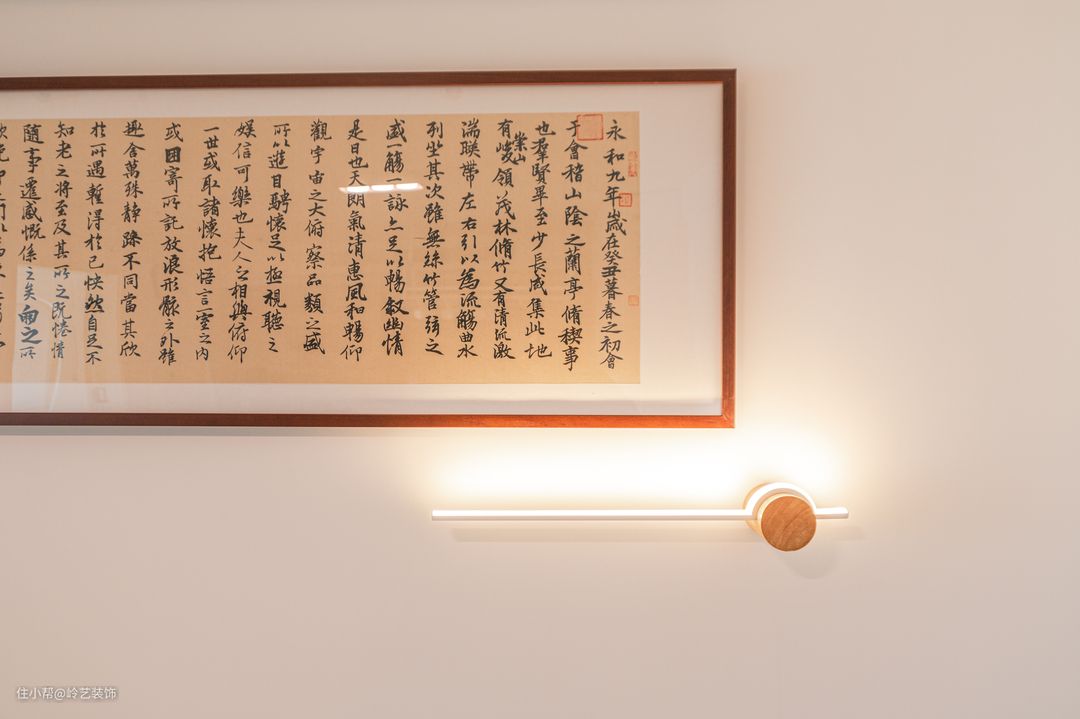 永和九年歲在癸丑暮春之初會
于會稽山陰之蘭亭脩稧事
也羣賢畢至少長咸集此地
有崇山峻領茂林脩竹又有清流激
湍暎帶左右引以為流觴曲水
列坐其次雖無絲竹管弦之
盛一觴一詠亦足以暢敘幽情
是日也天朗氣清惠風和暢仰
觀宇宙之大俯察品類之盛
所以遊目騁懷足以極視聽之
娛信可樂也夫人之相與俯仰
一世或取諸懷抱悟言一室之內
或因寄所託放浪形骸之外雖
趣舍萬殊靜躁不同當其欣
於所遇暫得於己怏然自足不
知老之將至及其所之既惓情
隨事遷感慨係之矣向之所
住小帮@岭艺装饰